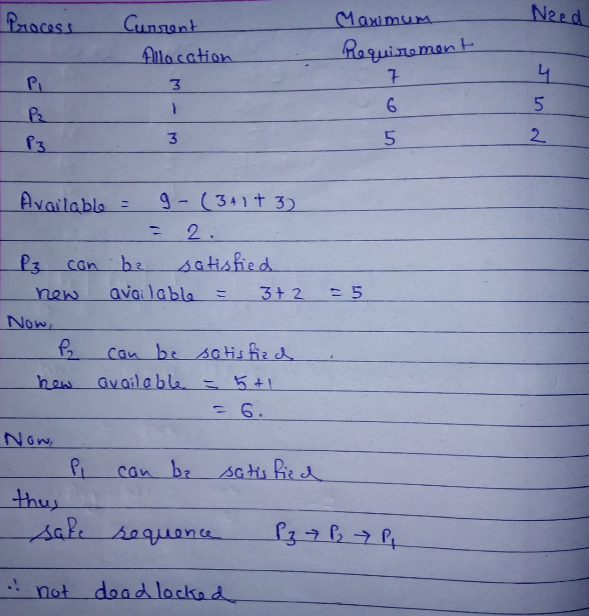 Process Current Maximum Need
Allocation Requirement
P1 3 7 4
P2 1 6 5
P3 3 5 2
Available = 9 - (3+1+3)
= 2.
P3 can be satisfied
new available = 3+2 = 5
Now,
P2 can be satisfied.
new available = 5+1
= 6.
Now,
P1 can be satisfied
thus,
safe sequence P3 → P2 → P1
∴ not deadlocked